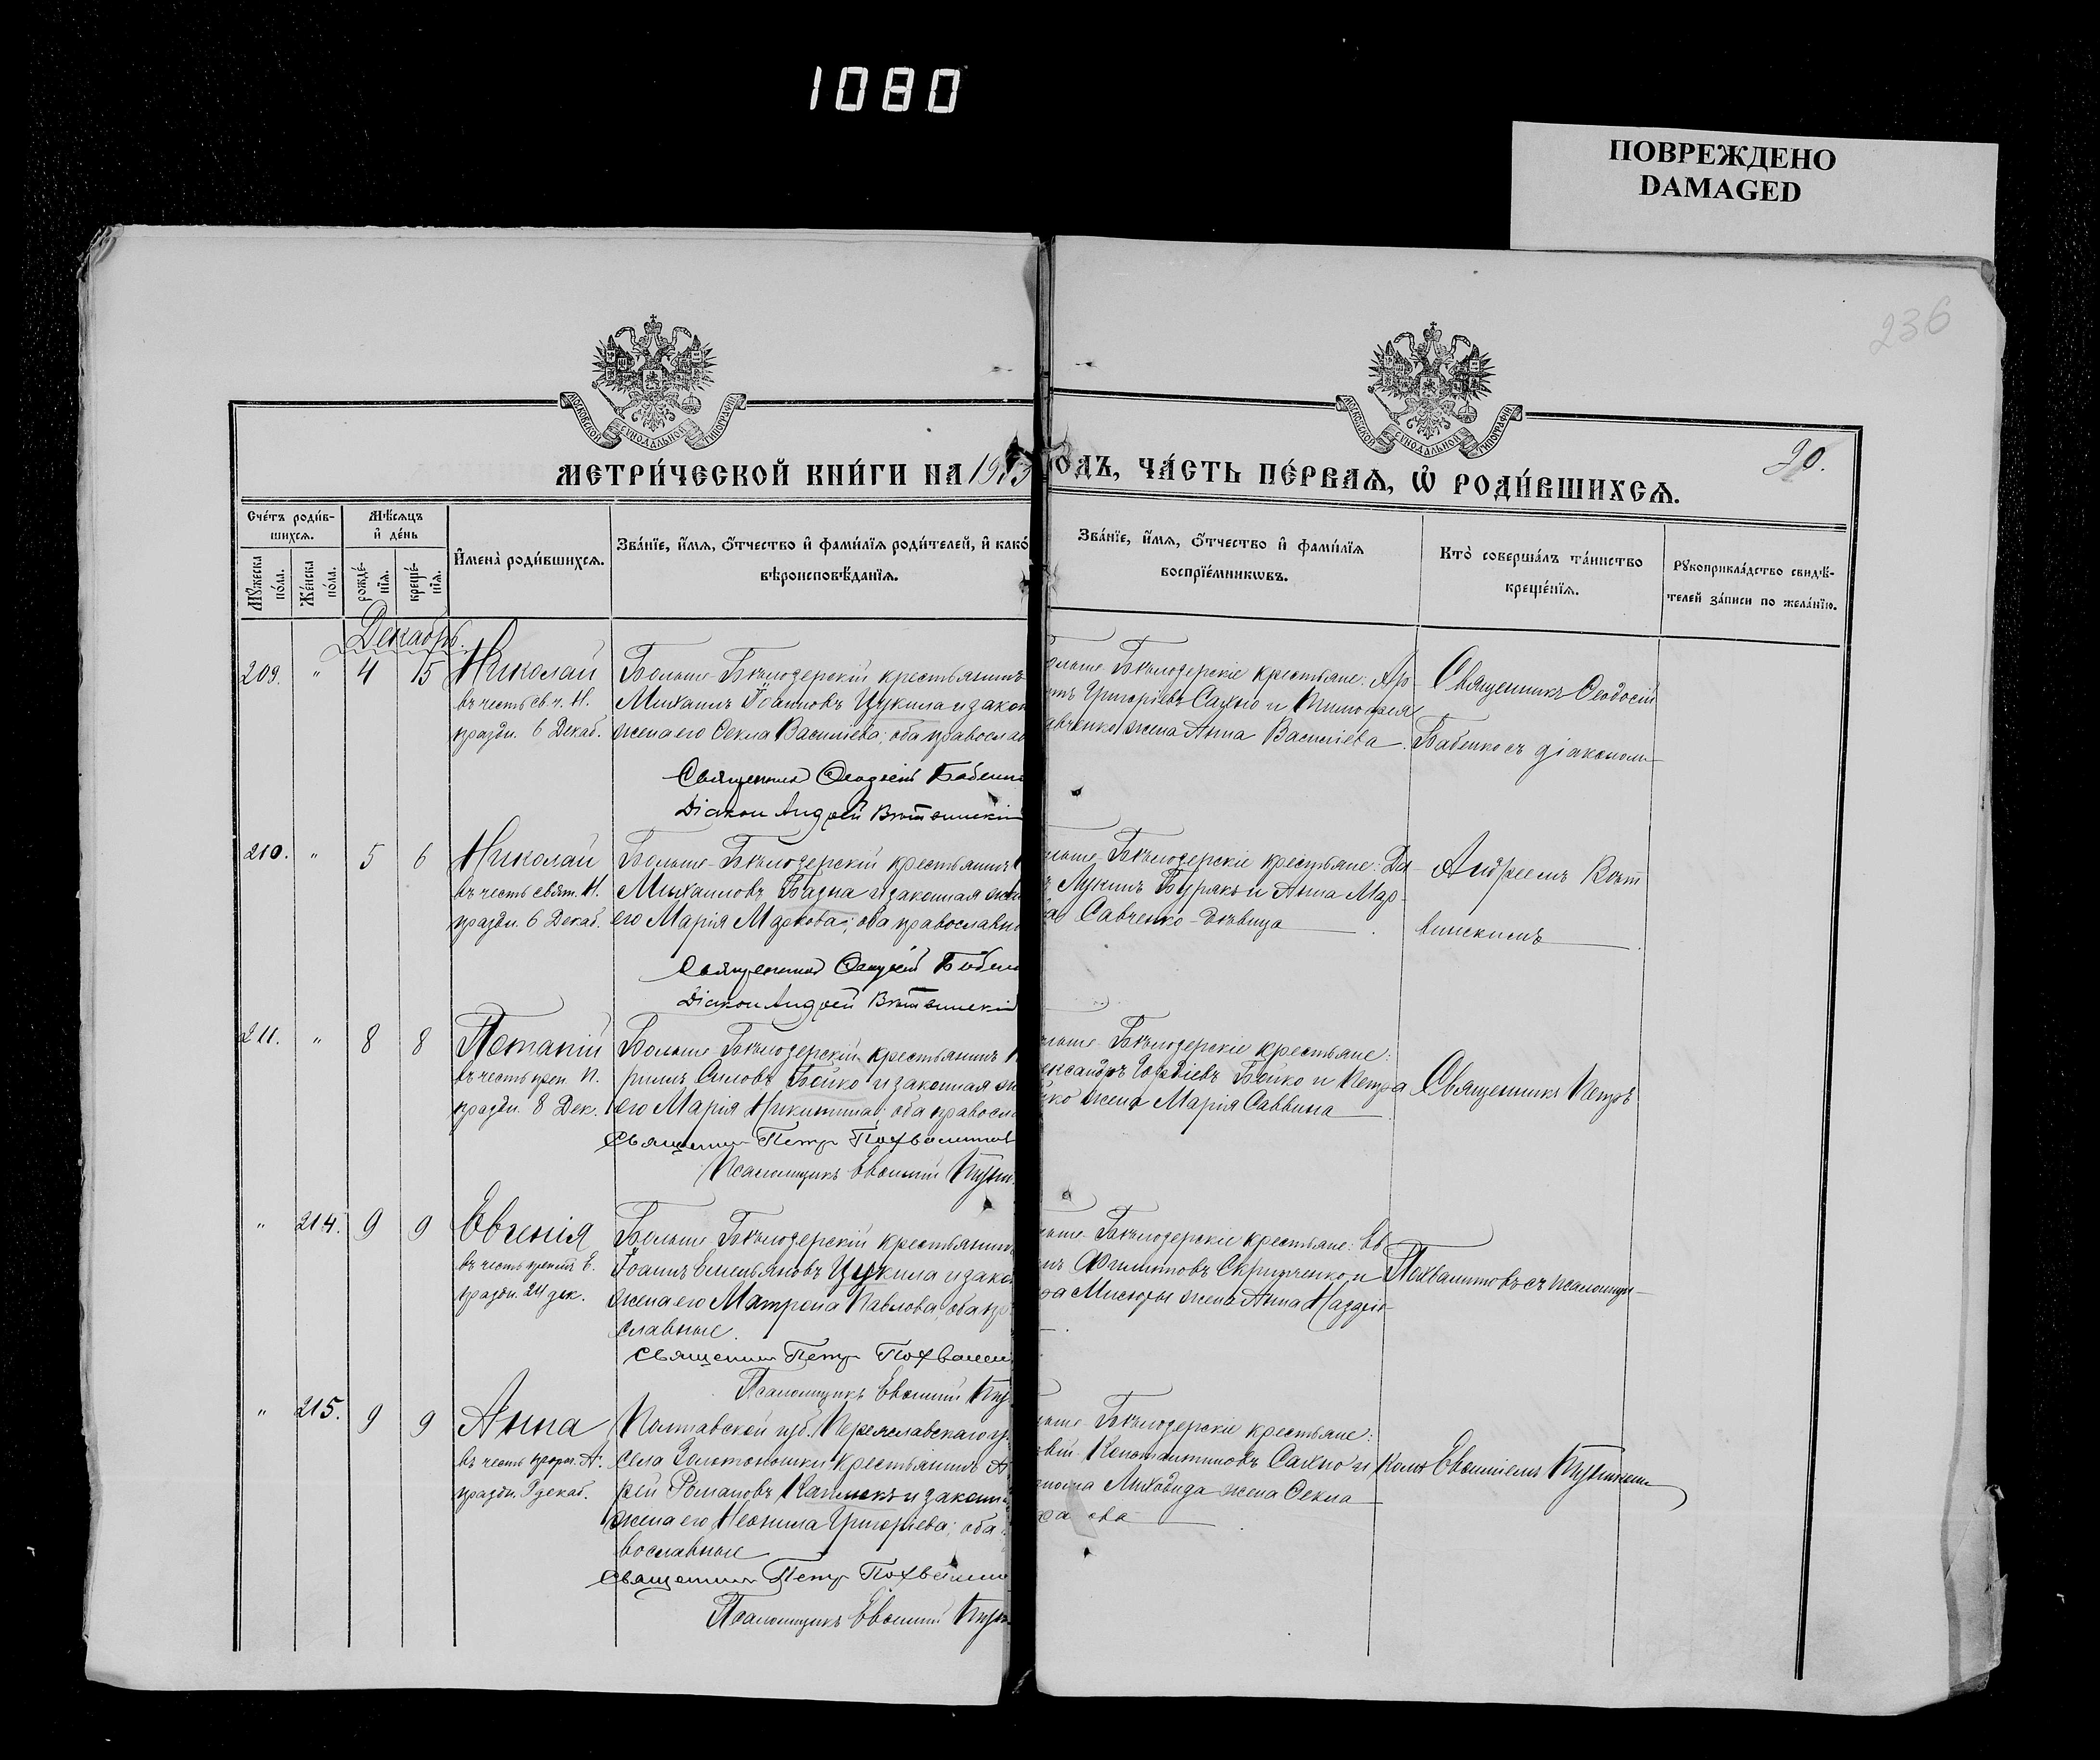 1080
ПОВРЕЖДЕНО
DAMAGED
236
МОСКОВСКОЙ СѴНОДАЛЬНОЙ ТИПОГРАФІИ
МОСКОВСКОЙ СѴНОДАЛЬНОЙ ТИПОГРАФІИ
20.
МЕТРИ́ЧЕСКОЙ КНИ́ГИ НА
ОДЪ, ЧА́СТЬ ПЕ́РВАѦ, Ѡ҆ РОДИ́ВШИХСѦ.
Сче́тъ роди́в-
шихсѧ.
Мѣ́сѧцъ
и҆ де́нь
Мꙋ́жеска по́ла.
Же́нска по́ла.
рожде́-нїѧ.
креще́-нїѧ.
И҆мена̀ роди́вшихсѧ.
Зва́нїе, и҆́мѧ, ѻ҆́тчество и҆ фамѝлїѧ роди́телей, и҆ како́
вѣроисповѣ́данїѧ.
Зва́нїе, и҆́мѧ, ѻ҆́тчество и҆ фамѝлїѧ
воспрїе́мникѡвъ.
Кто̀ соверша́лъ та́инство
креще́нїѧ.
Рꙋкоприкла́дство свидѣ́-
телей за́писи по жела́нїю.
Декабрь.
209. " 4 15 Николай
въ честь св. ч. Н.
праздн. 6 Декаб.
Больше-Бѣлозерскій крестьянинъ
Михаилъ Іоанновъ Цукила и закон
жена его Ѳекла Василіева; оба православ
Священникъ Ѳеодосій Бабенко
Діаконъ Андрей
ольше-Бѣлозерскіе крестьяне:
Григоріевъ Сахно и
авченко жена Анна Василіева.
Священникъ Ѳеодосій
Бабенко съ діакономъ
210. " 5 6 Николай
въ честь свят. Н.
праздн. 6 Декаб.
Больше-Бѣлозерскій крестьянинъ
Михаиловъ Бадна и законная жен
его Марія Маркова; оба православны
Священникъ Ѳеодосій Бабен
Діаконъ Андрей
льше-Бѣлозерскіе крестьяне:
Лукинъ Бурякъ и Анна Мар-
Савченко-дѣвица
Андреемъ Вѣт
винскимъ
211. " 8 8 Потапій
въ честь преп. П.
праздн. 8 Дек.
Больше-Бѣлозерскій крестьянинъ
Силовъ Бойко и законная же
его Марія Никитина; оба правосла
Священникъ Петръ Похвалитов
Псаломщикъ Евѳимій
льше-Бѣлозерскіе крестьяне:
ександръ Гордіевъ Бойко и Петра
жена Марія Саввина
Священникъ Петръ
" 214. 9 9 Евгенія
въ честь препод. Е.
праздн. 24 дек.
Больше-Бѣлозерскій крестьянинъ
Іоаннъ Емельяновъ Цукила и зако
жена его Матрона Павлова; оба пра
славные.
Священникъ Петръ Похвалит
Псаломщикъ Евѳимій
ьше-Бѣлозерскіе крестьяне: Ев
Филипповъ Скрипченко и
Мисюры жена Анна
Похвалитовъ съ псаломщи-
" 215. 9 9 Анна
въ честь прор. А.
праздн. 9 декаб.
Полтавской губ. Переяславскаго у.
села Золотоношки крестьянинъ Ан
рей Романовъ и законн
жена его Неонила Григоріева; оба
вославные
Священникъ Петръ Похвалит
Псаломщикъ Евѳимій
ьше-Бѣлозерскіе крестьяне:
Константиновъ Сахно и
Миховида жена Ѳекла
комъ Евѳиміемъ